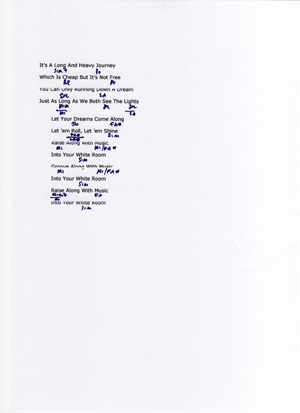 It's A Long And Heavy Journey
Sim7 Do
Which Is Cheap But It's Not Free
RE
You Can Only Running Down A Dream
SOL LA
Just As Long As We Both See The Lights
Let Your Dreams Come Along
FA#
Let 'em Roll, Let 'em Shine
Sim
Raise Along With Music
Mi Mi/FA#
Into Your White Room
Sim
Groove Along With Music
Mi Mi/FA#
Into Your White Room
Sim
Raise Along With Music
FA
Into Your White Room
Sim